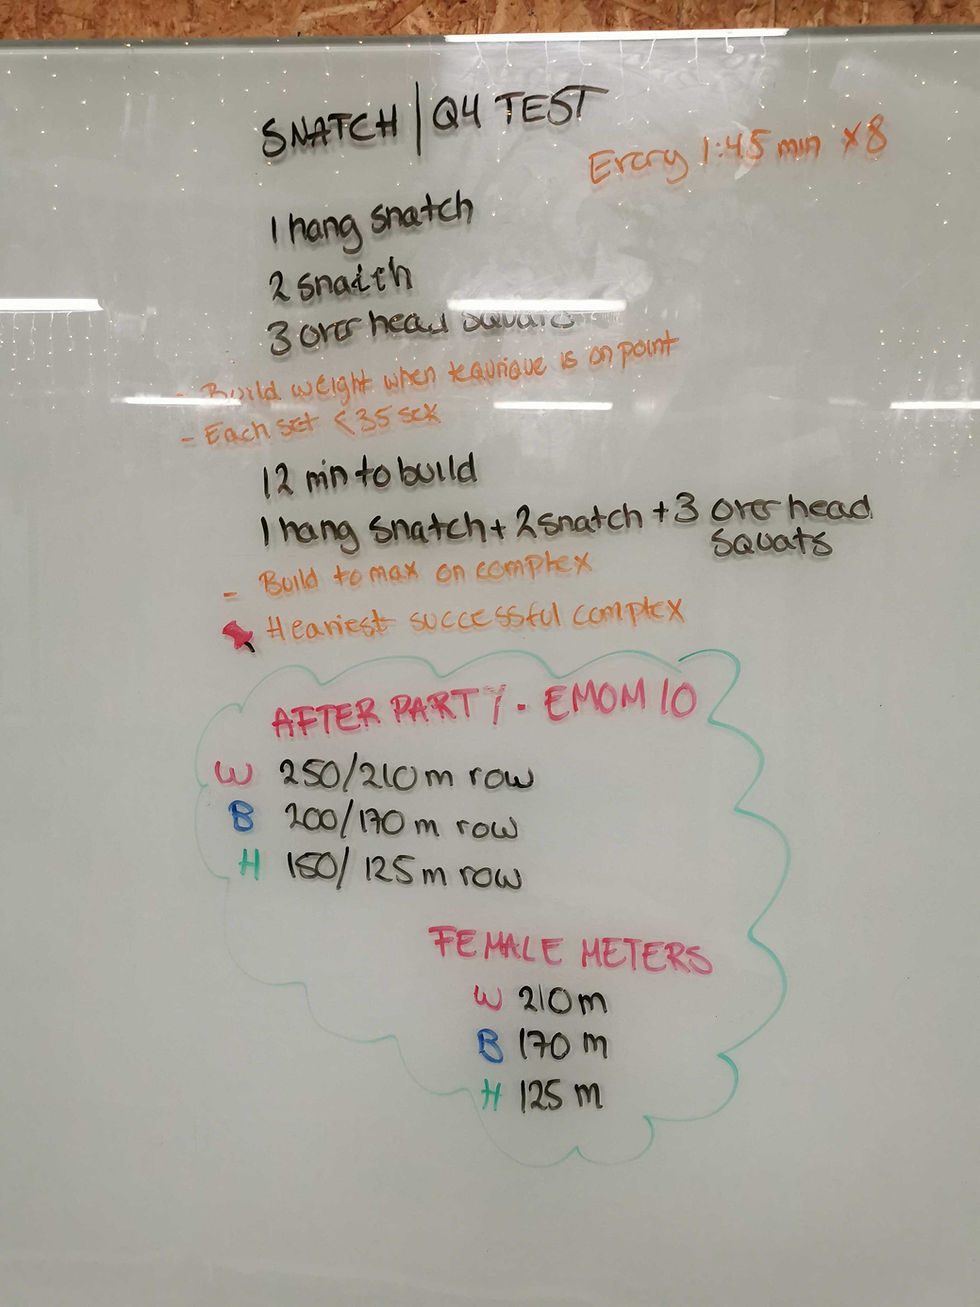 SNATCH | Q4 TEST
Every 1:45 min x8
1 hang snatch
2 snatch
3 over head squats
- Build weight when tequnique is on point
- Each set < 35 sek
12 min to build
1 hang snatch + 2 snatch + 3 over head
squats
- Build to max on complex
Heaviest successful complex
AFTER PARTY. EMOM 10
W 250/210 m row
B 200/170 m row
H 150/125 m row
FEMALE METERS
W 210 m
B 170 m
H 125 m